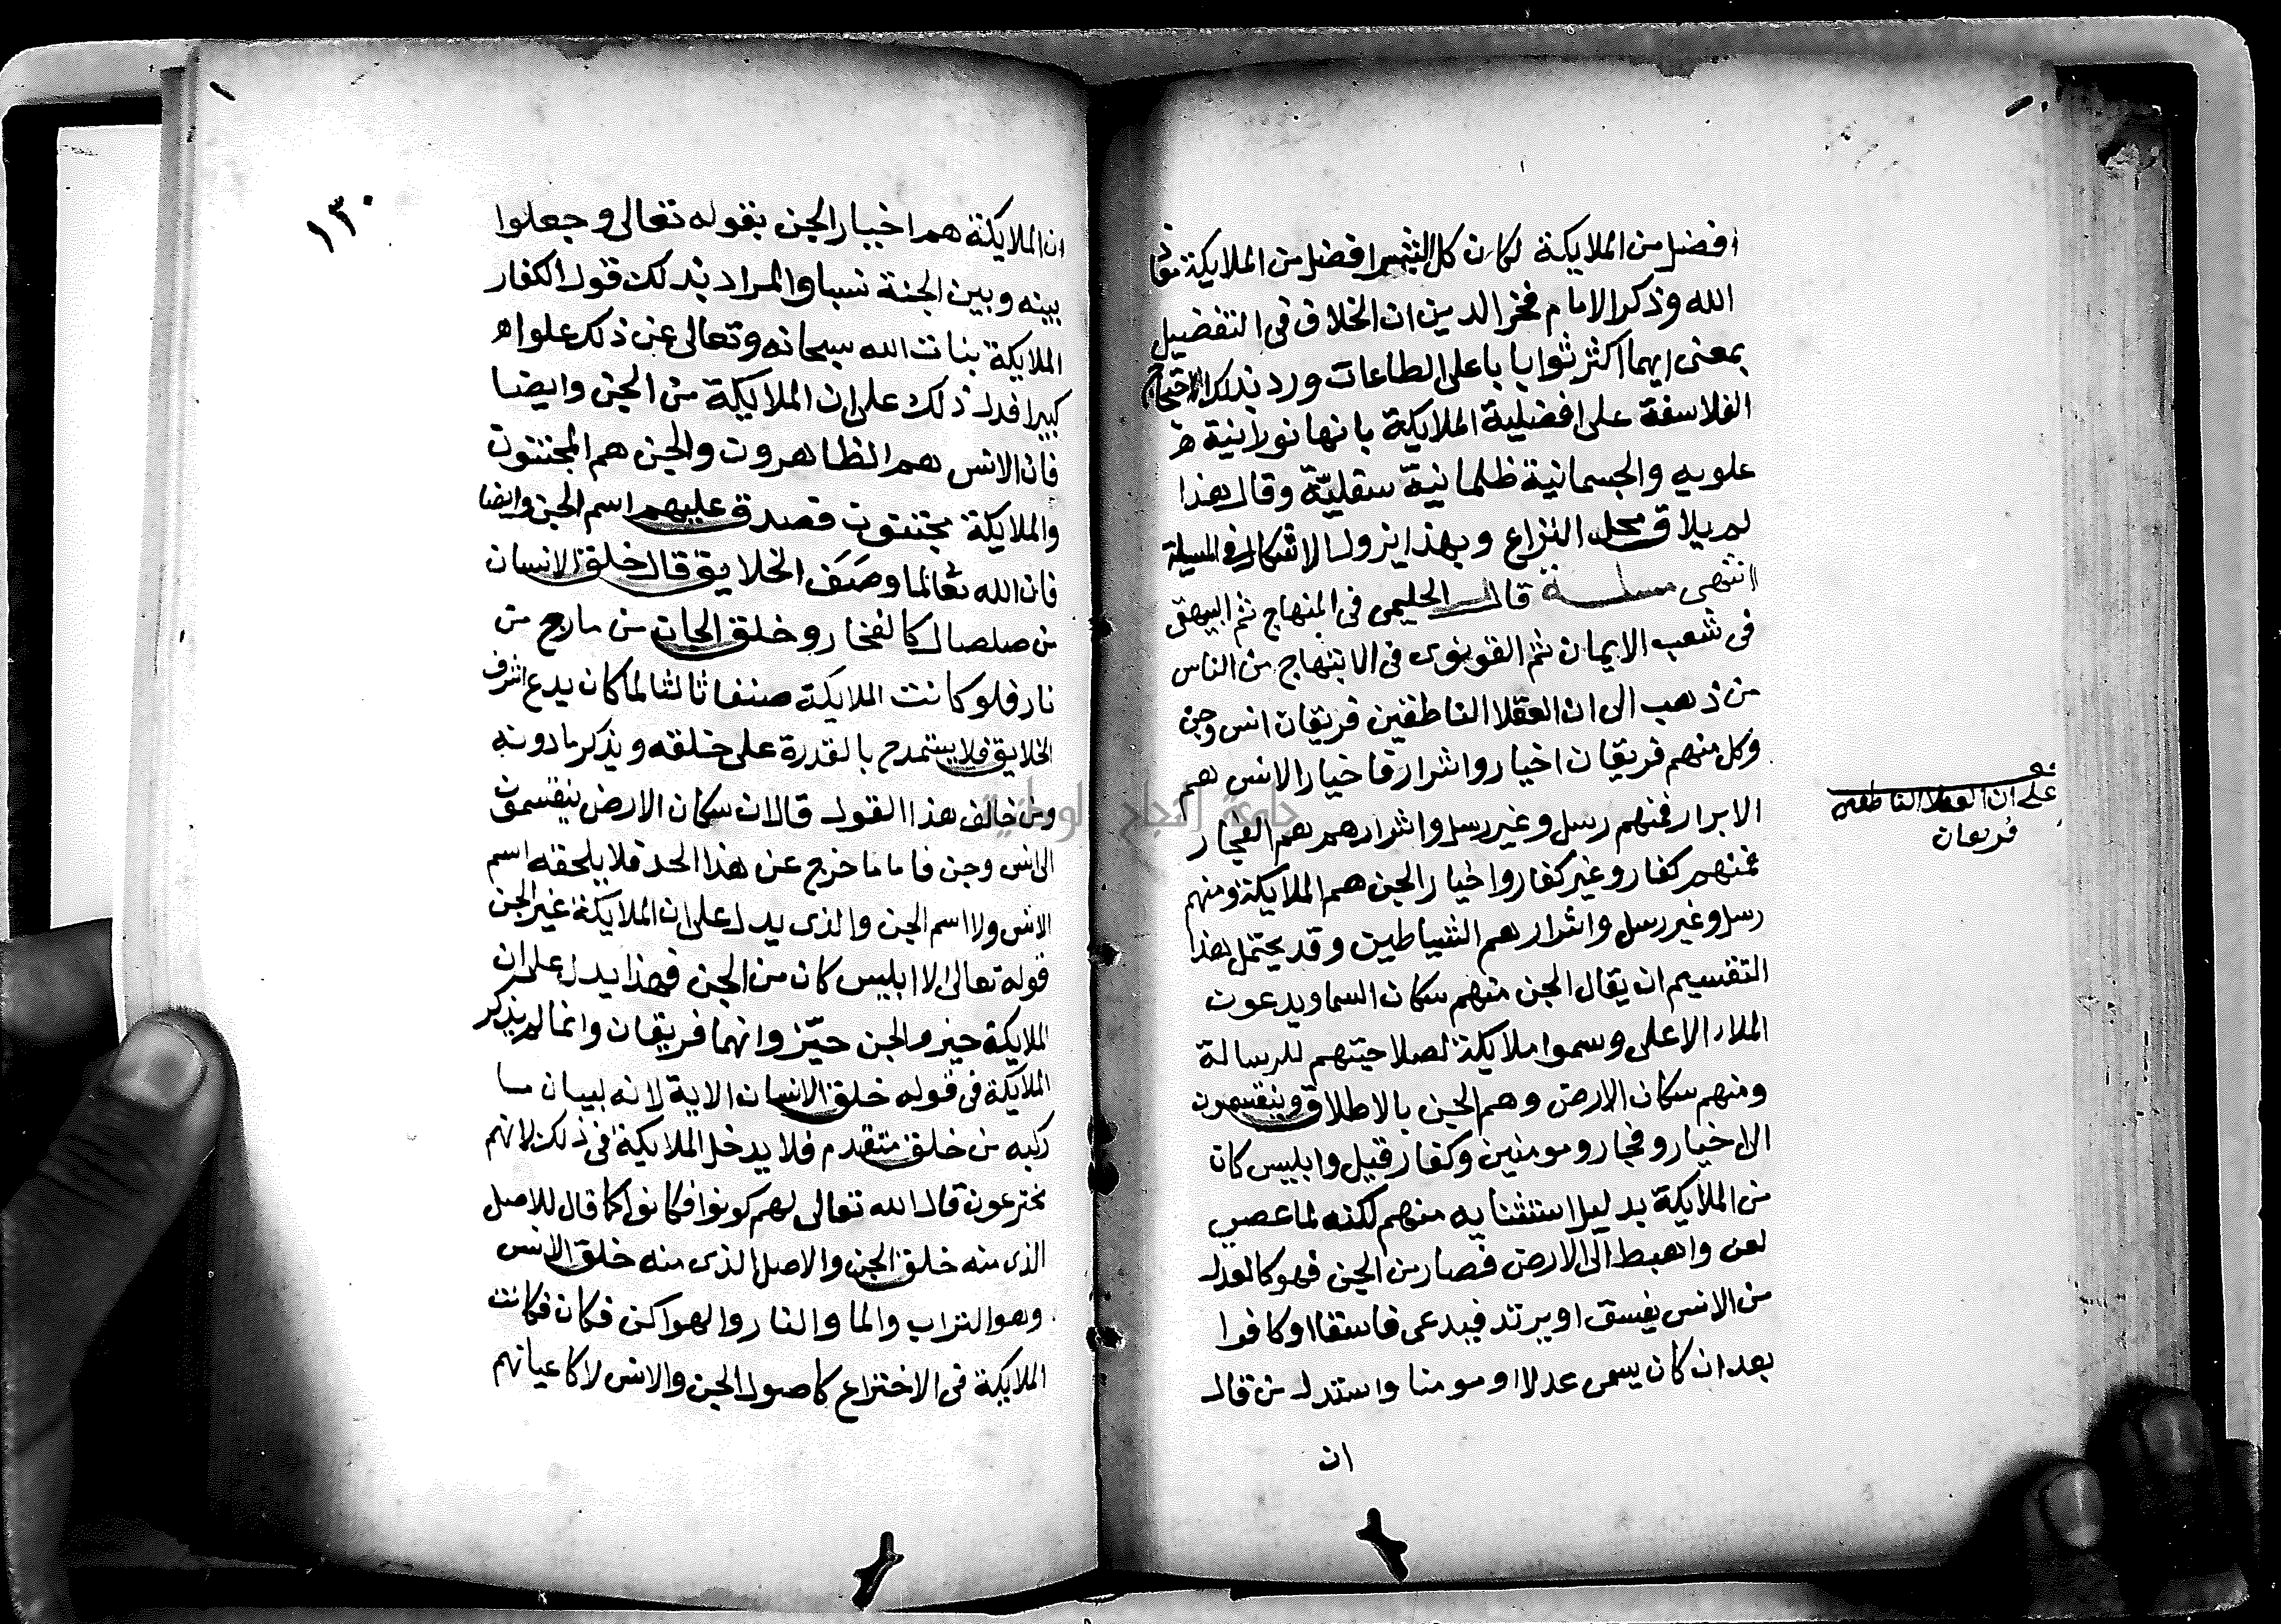 افضل من الملايكة لكان كل البشر افضل من الملايكة
الله وذكر الامام فخر الدين ان الخلاف فى التفضيل
بمعنى ايهما اكثر ثوابا باعلى الطاعات ورد بذلك احتجاج
الفلاسفة على افضلية الملايكة بانها نورانية
علويه والجسمانية ظلمانية سفلية وقال هذا
لم يلاق محل النزاع وبهذا يزول الاشكال فى المسيلة
انتهى مسلة قال الحليمى فى المنهاج ثم البيهقى
فى شعب الايمان ثم القونوى فى الابتهاج من الناس
من ذهب الى ان العقلا الناطقين فريقان انس وجن
وكل منهم فريقان اخيار واشرار فاخيار الانس هم
الابرار فمنهم رسل وغير رسل واشرارهم هم الفجار
فمنهم كفار وغير كفار واخيار الجن هم الملايكة ومنهم
رسل وغير رسل واشرارهم الشياطين وقد يحتمل هذا
التقسيم ان يقال الجن منهم سكان السما ويدعون
الملاء الاعلى وسموا ملايكة لصلاحيتهم للرسالة
ومنهم سكان الارض وهم الجن بالاطلاق وينقسمون
الى اخيار وفجار ومومنين وكفار قيل وابليس كان
من الملايكة بدليل استثنايه منهم لكنه لما عصى
لعن واهبط الى الارض فصار من الجن فهو كالعدل
من الانس يفسق او يرتد فيدعى فاسقا او كافرا
بعد ان كان يسمى عدلا او مومنا واستدل من قال
ان
على ان العقلا الناطقين
فريقان
١٣٠
ان الملايكة هم اخيار الجن بقوله تعالى وجعلوا
بينه وبين الجنة نسبا والمراد بذلك قول الكفار
الملايكة بنات الله سبحانه وتعالى عن ذلك علوا
كبيرا فدل ذلك على ان الملايكة من الجن وايضا
فان الانس هم الظاهرون والجن هم المجتنون
والملايكة مجتنون فصدق عليهم اسم الجن وايضا
فان الله تعالى لما وصف الخلايق قال خلق الانسان
من صلصال كالفخار وخلق الجان من مارج من
نار فلو كانت الملايكة صنفا ثالثا لما كان يدع اشرف
الخلايق فلا يتمدح بالقدرة على خلقه ويذكر ما دونه
ومن خالف هذا القول قال ان سكان الارض ينقسمون
الى انس وجن فاما ما خرج عن هذا الحد فلا يلحقه اسم
الانس ولا اسم الجن والذى يدل على ان الملايكة غير الجن
قوله تعالى الا ابليس كان من الجن فهذا يدل على ان
الملايكة حيز والجن حيّز وانهما فريقان وانما لم يذكر
الملايكة فى قوله خلق الانسان الاية لانه لبيان ما
ركبه من خلق متقدم فلا يدخل الملايكة فى ذلك لانهم
مخترعون قال الله تعالى لهم كونوا فكانوا كما قال للاصل
الذى منه خلق الجن والاصل الذى منه خلق الانس
وهو التراب والما والنار والهوا كن فكان فكانت
الملايكة فى الاختراع كاصول الجن والانس لا كاعيانهم
جامعة النجاح الوطنية